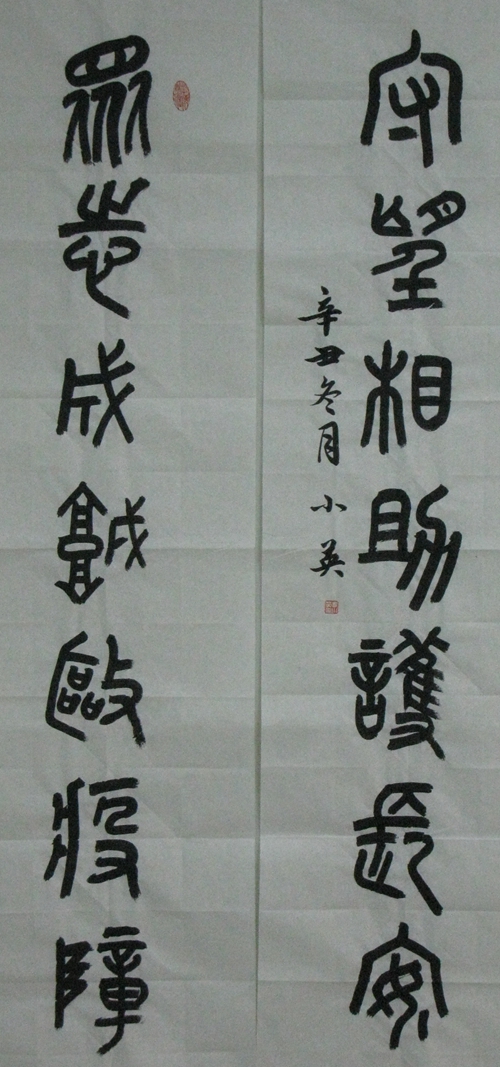 眾志成城敺疫障
守望相助護長安
辛丑冬月 小英